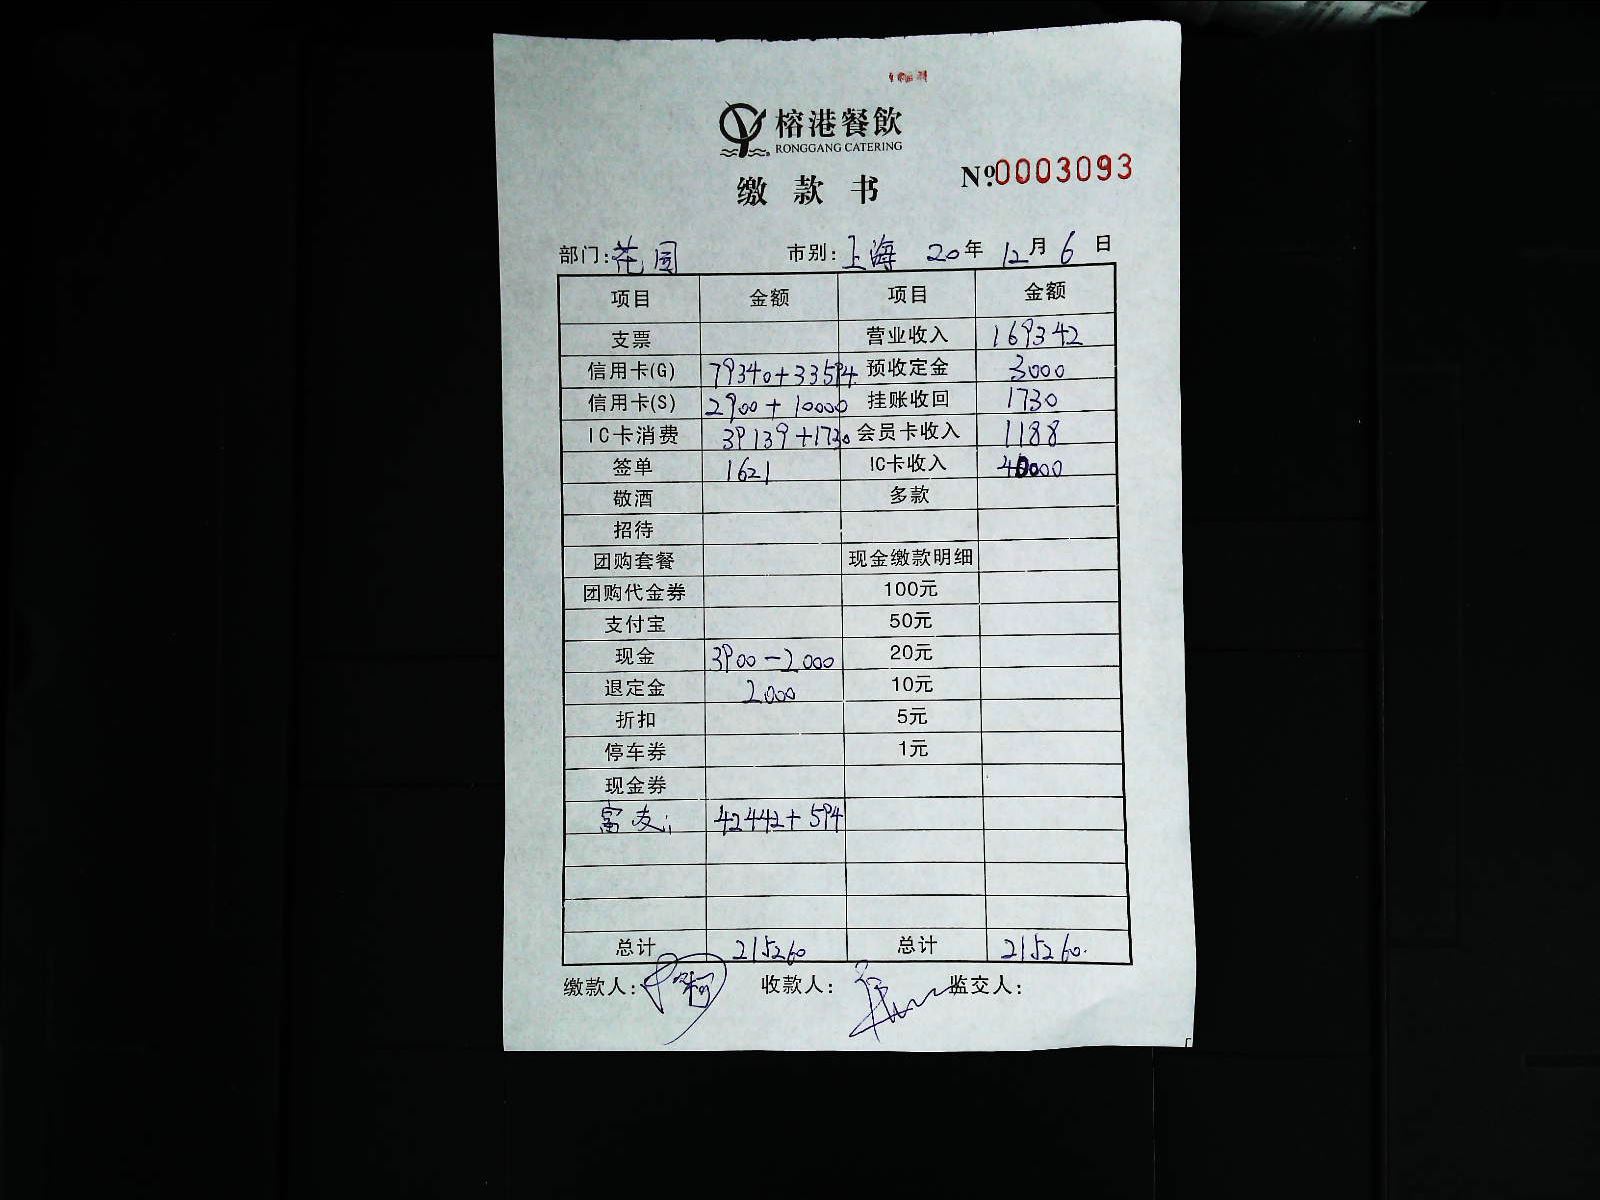 榕港餐飲
RONGGANG CATERING
缴款书
Nº.0003093
部门:花园 市别:上海 20年12月6日
项目 金额 项目 金额
支票 营业收入 169342
信用卡(G) 79340+33594 预收定金 3000
信用卡(S) 2900+10000 挂账收回 1730
IC卡消费 39139+1730 会员卡收入 1188
签单 1621 IC卡收入 40000
敬酒 多款
招待
团购套餐 现金缴款明细
团购代金券 100元
支付宝 50元
现金 3900-2000 20元
退定金 2000 10元
折扣 5元
停车券 1元
现金券
富友: 42442+594
总计 215260 总计 215260.
缴款人: 收款人: 监交人: